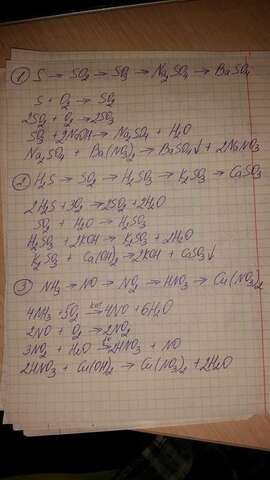 ① S → SO₂ → SO₃ → Na₂SO₄ → BaSO₄
S + O₂ → SO₂
2SO₂ + O₂ → 2SO₃
SO₃ + 2NaOH → Na₂SO₄ + H₂O
Na₂SO₄ + Ba(NO₃)₂ → BaSO₄↓ + 2NaNO₃
② H₂S → SO₂ → H₂SO₃ → K₂SO₃ → CaSO₃
2H₂S + 3O₂ → 2SO₂ + 2H₂O
SO₂ + H₂O → H₂SO₃
H₂SO₃ + 2KOH → K₂SO₃ + 2H₂O
K₂SO₃ + Ca(OH)₂ → 2KOH + CaSO₃↓
③ NH₃ → NO → NO₂ → HNO₃ → Cu(NO₃)₂
4NH₃ + 5O₂ kat→ 4NO + 6H₂O
2NO + O₂ → 2NO₂
3NO₂ + H₂O → 2HNO₃ + NO
2HNO₃ + Cu(OH)₂ → Cu(NO₃)₂ + 2H₂O